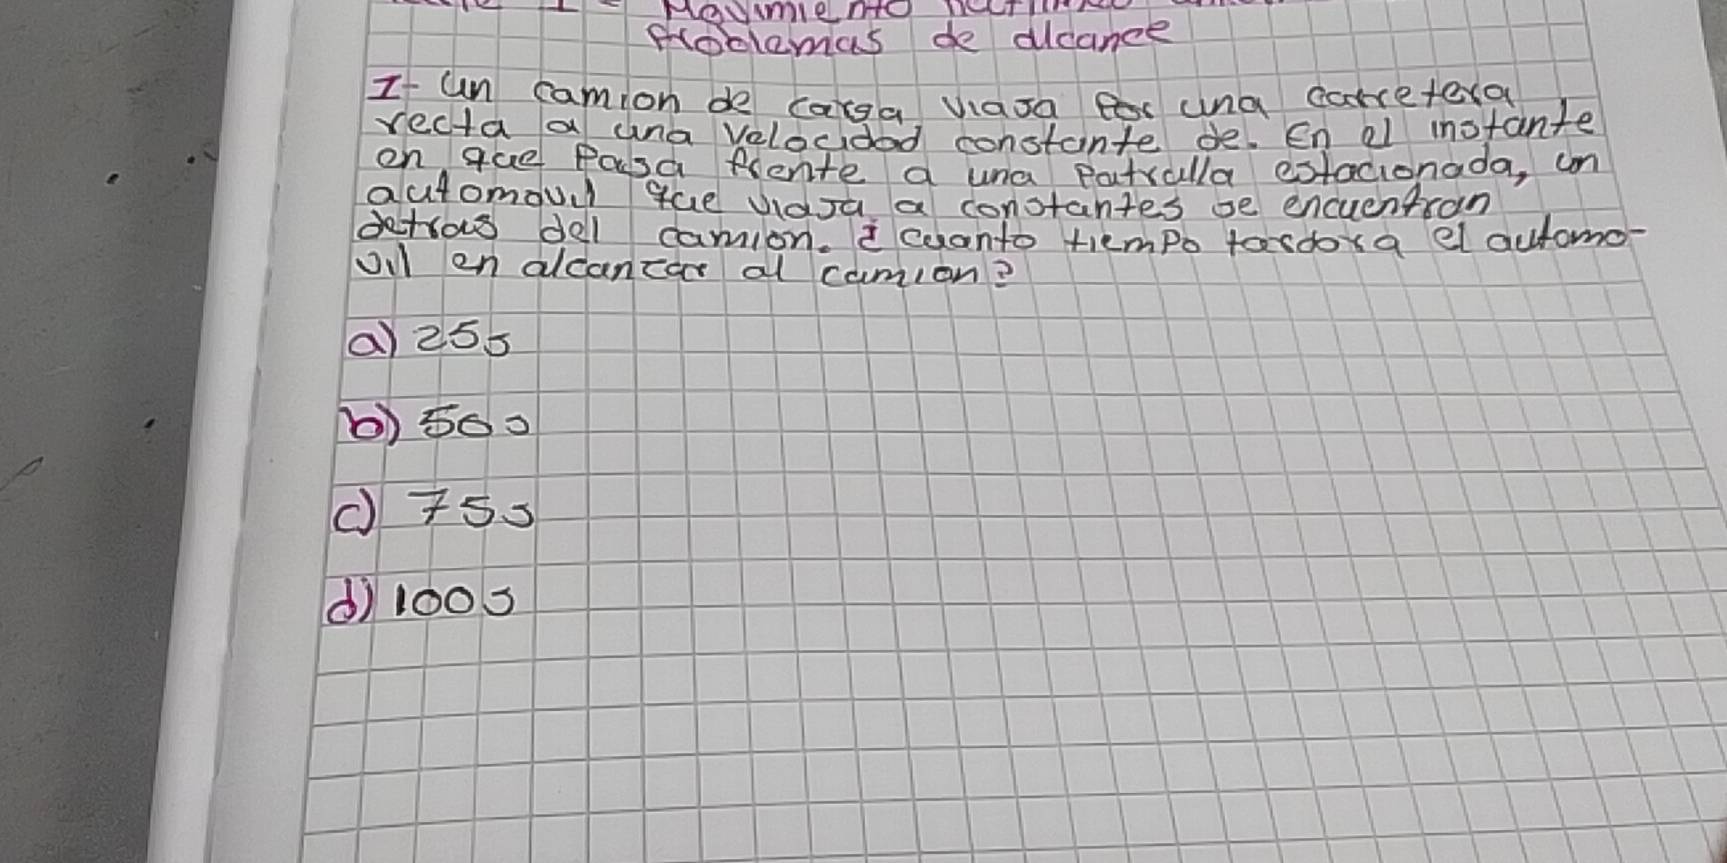 Problemas de alcance
I- Un camion de carga viaja por una carretera
recta a una velocidad constante de. En el instante
en que Pasa frente a una Patrulla estacionada, un
automovil que viaja a constantes se encuentran
detras del camion. ¿ cuanto tiempo tardara el automo-
vil en alcanzar al camion?
a) 25s
b) 50s
c) 75s
d) 100s